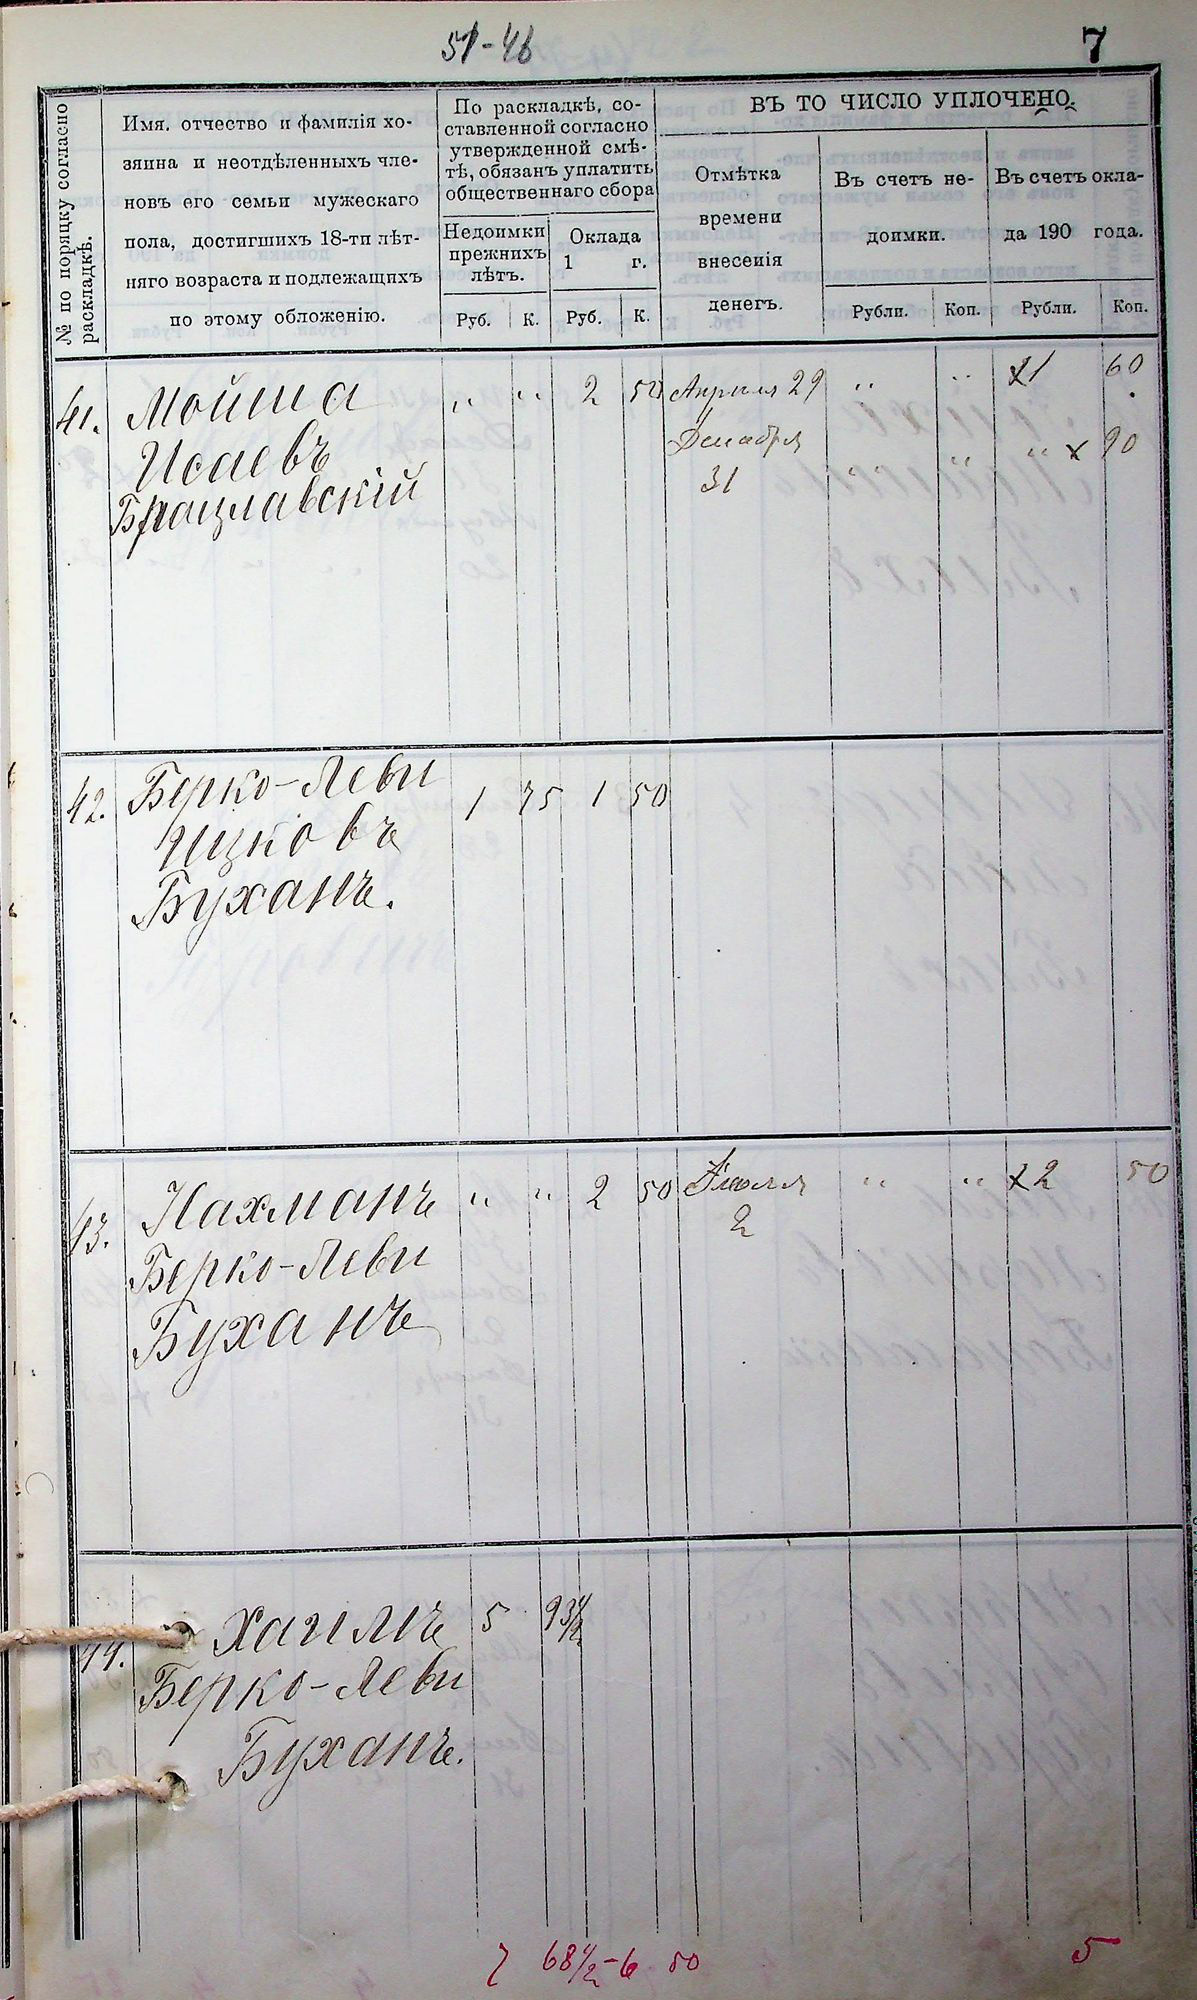 51-46
7
№ по порядку согласно раскладкѣ.
Имя, отчество и фамилія хо-
зяина и неотдѣленныхъ чле-
новъ его семьи мужескаго
пола, достигшихъ 18-ти лѣт-
няго возраста и подлежащихъ
по этому обложенію.
По раскладкѣ, со-
ставленной согласно
утвержденной смѣ-
тѣ, обязанъ уплатить
общественнаго сбора
Недоимки
прежнихъ
лѣтъ.
Оклада
1 г.
Руб. К. Руб. К.
ВЪ ТО ЧИСЛО УПЛОЧЕНО.
Отмѣтка
времени
внесенія
денегъ.
Въ счетъ не-
доимки.
Въ счетъ окла-
да 190 года.
Рубли. Коп. Рубли. Коп.
41. Мойша " " 2 50 Апрѣля 29 " " 1 60
Исаевъ Декабря " x 90
Брацлавскій 31
42. Берко-Леви 1 75 1 50
Ицковъ
Буханъ.
43. Нахманъ " " 2 50 " " 2 50
Берко-Леви 2
Буханъ
44. Хаимъ 5 93 1/2
Берко-Леви
Буханъ.
7 68 1/2 - 6 50 5